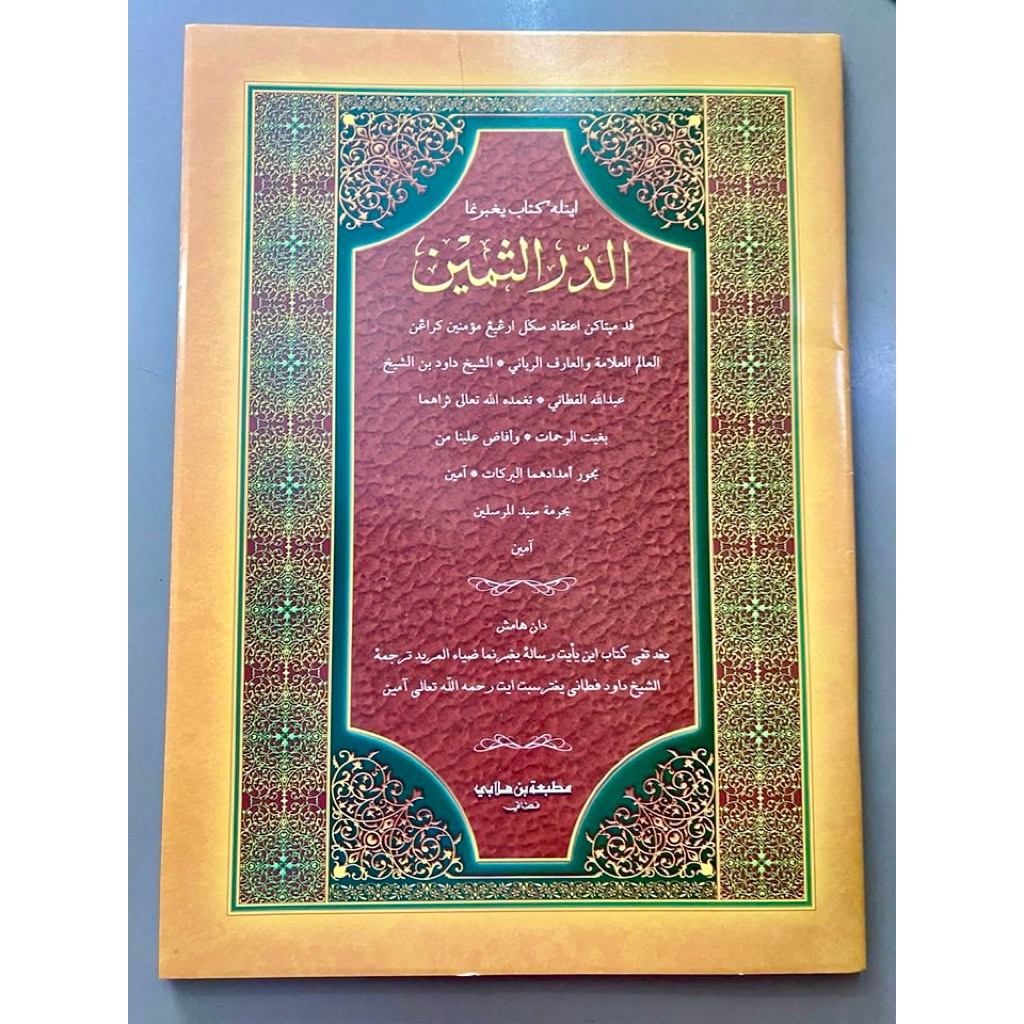 ايتله كتاب يغبرنما
الدّر الثمين
فد مپتاكن اعتقاد سكل ارڠيڠ مؤمنين كراڠن
العالم العلامة والعارف الرباني * الشيخ داود بن الشيخ
عبدالله الفطاني * تغمده الله تعالى ثراهما
بغيت الرحمات * وأفاض علينا من
بحور أمدادهما البركات * آمين
بحرمة سيد المرسلين
آمين
دان هامش
يغد تفى كتاب اين يأيت رسالة يغبرنما ضياء المريد ترجمة
الشيخ داود فطانى يغترسبت ايت رحمه الله تعالى آمين
مطبعة بن هلابي
فطاني